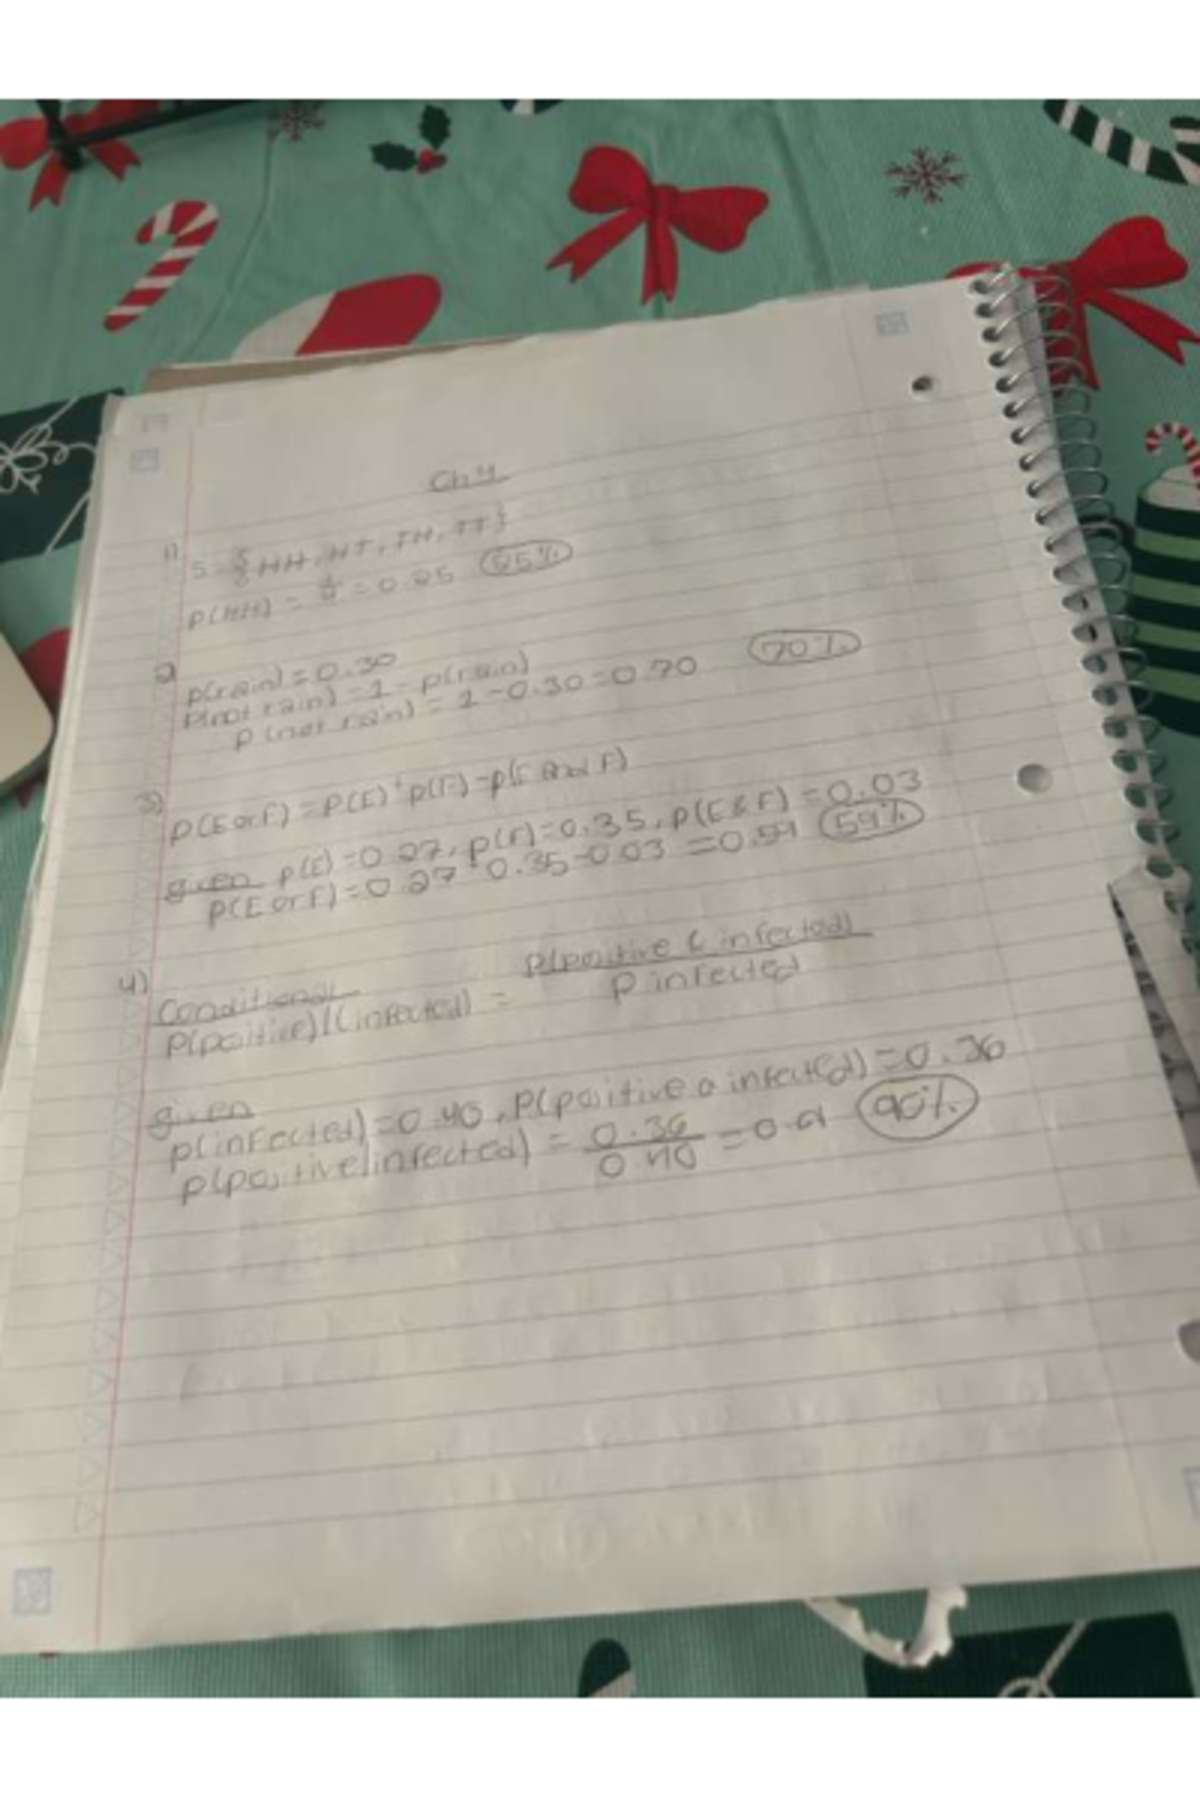 Ch 4
1) S = {HH, HT, TH, TT}
P(HH) = 1/4 = 0.25 25%
2) p(rain) = 0.30
P(not rain) = 1 - p(rain)
P(not rain) = 1 - 0.30 = 0.70 70%
3) P(E or F) = P(E) + p(F) - p(E and F)
given p(E) = 0.27, p(F) = 0.35, p(E & F) = 0.03
P(E or F) = 0.27 + 0.35 - 0.03 = 0.59 59%
4) Conditional
P(positive)|(infected) = p(positive & infected) / P infected
given
p(infected) = 0.40, P(positive a infected) = 0.36
p(positive|infected) = 0.36 / 0.40 = 0.9 90%